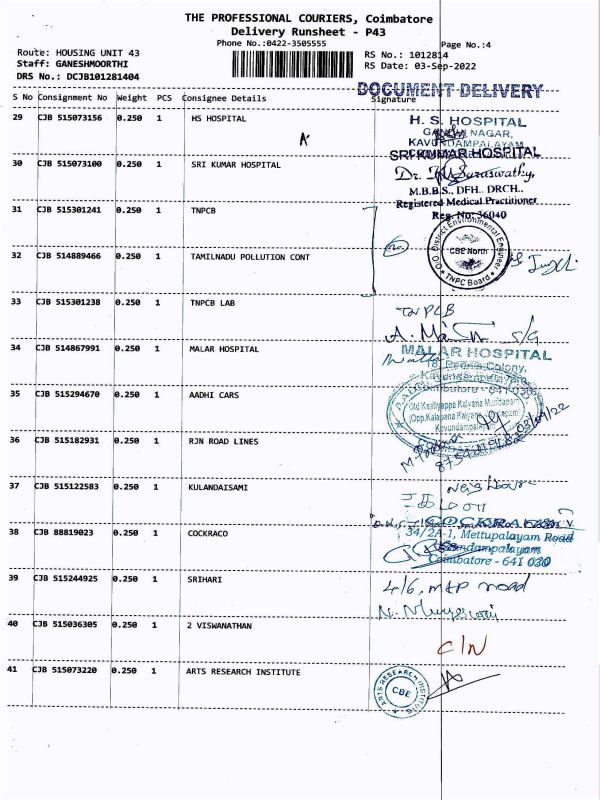 THE PROFESSIONAL COURIERS, Coimbatore
Delivery Runsheet - P43
Phone No.:0422-3505555
Page No.:4
Route: HOUSING UNIT 43
RS No.: 1012814
Staff: GANESHMOORTHI
RS Date: 03-Sep-2022
DRS No.: DCJB101281404
DOCUMENT DELIVERY
S No Consignment No Weight PCS Consignee Details Signature
29 CJB 515073156 0.250 1 HS HOSPITAL
H. S. HOSPITAL
GANDHI NAGAR,
KAVUNDAMPALAYAM
30 CJB 515073100 0.250 1 SRI KUMAR HOSPITAL
SRI KUMAR HOSPITAL
Dr. Saraswathy,
M.B.B.S., DFH., DRCH.,
Registered Medical Practitioner
Reg. No: 36040
31 CJB 515301241 0.250 1 TNPCB
32 CJB 514889466 0.250 1 TAMILNADU POLLUTION CONT
O/O. District Environmental Engineer
CBE North
TNPC Board
33 CJB 515301238 0.250 1 TNPCB LAB
34 CJB 514867991 0.250 1 MALAR HOSPITAL
MALAR HOSPITAL
Colony,
35 CJB 515294670 0.250 1 AADHI CARS
Old Kaaliyappa Kalyana Mundapam
36 CJB 515182931 0.250 1 RJN ROAD LINES
37 CJB 515122583 0.250 1 KULANDAISAMI
38 CJB 88819023 0.250 1 COCKRACO
34/2A-1, Mettupalayam Road
Coimbatore - 641 030
39 CJB 515244925 0.250 1 SRIHARI
4/6, mtp road
40 CJB 515036305 0.250 1 2 VISWANATHAN
C/N
41 CJB 515073220 0.250 1 ARTS RESEARCH INSTITUTE
ARTS RESEARCH INSTITUTE
CBE